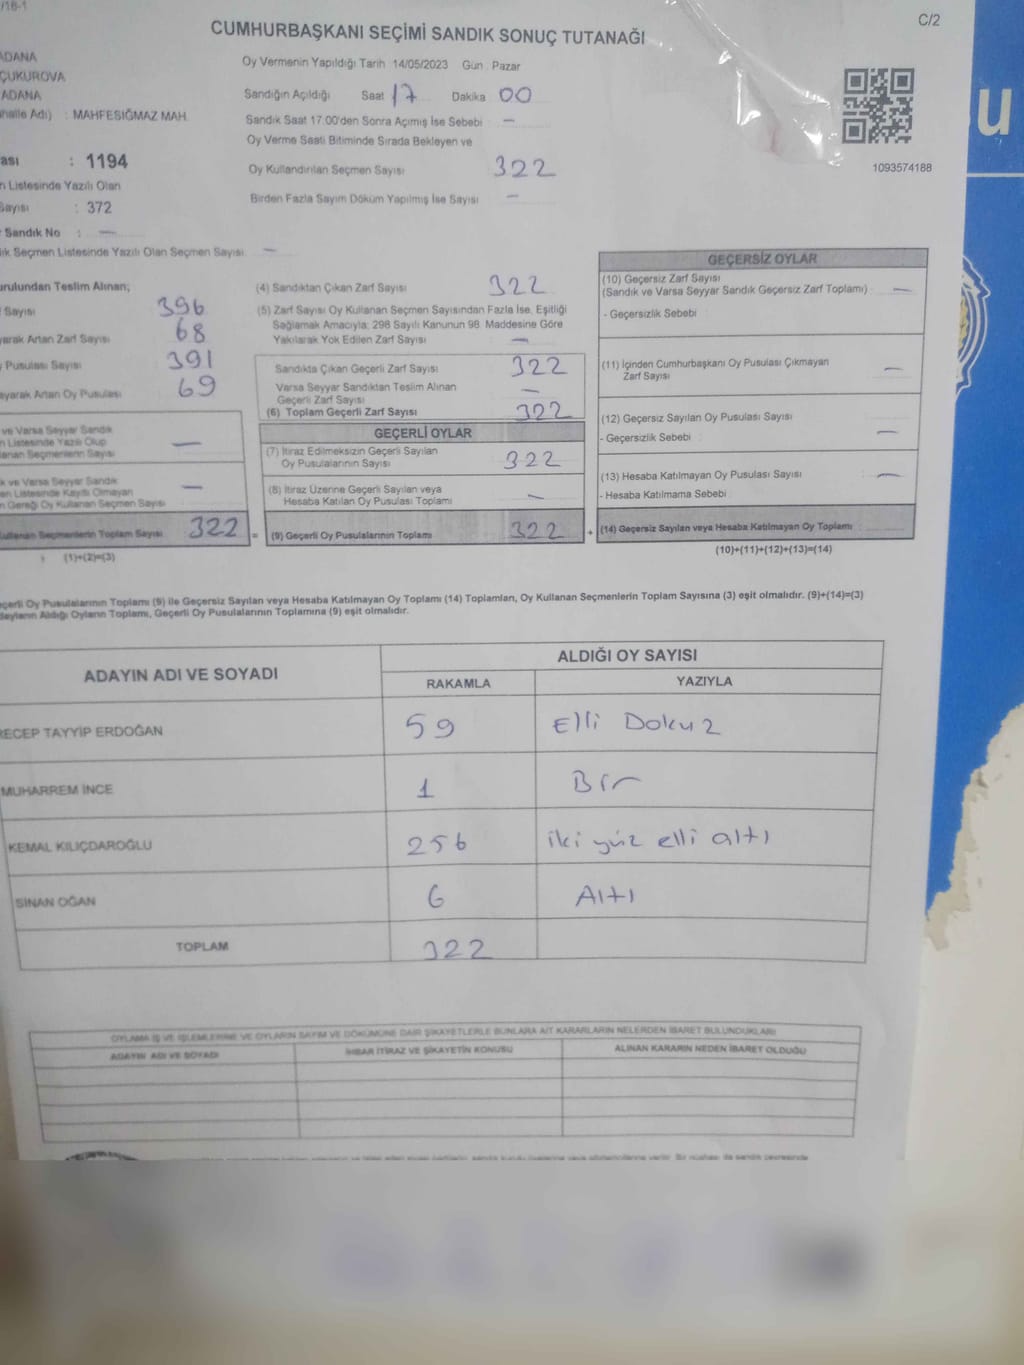 /18-1
C/2
CUMHURBAŞKANI SEÇİMİ SANDIK SONUÇ TUTANAĞI
ADANA
ÇUKUROVA
ADANA
Adı) : MAHFESIĞMAZ MAH.
Oy Vermenin Yapıldığı Tarih : 14/05/2023 Gün : Pazar
Sandığın Açıldığı Saat 17 Dakika 00
Sandık Saat 17.00'den Sonra Açımış İse Sebebi : —
Oy Verme Saati Bitiminde Sırada Bekleyen ve
Oy Kullandırılan Seçmen Sayısı 322
Birden Fazla Sayım Döküm Yapılmış İse Sayısı —
u
1093574188
ası : 1194
n Listesinde Yazılı Olan
Sayısı : 372
Sandık No : —
ık Seçmen Listesinde Yazılı Olan Seçmen Sayısı: —
urulundan Teslim Alınan;
Sayısı 396
yarak Artan Zarf Sayısı 68
Pusulası Sayısı 391
ayarak Artan Oy Pusulası 69
ve Varsa Seyyar Sandık
n Listesinde Yazılı Olup
lanan Seçmenlerin Sayısı —
k ve Varsa Seyyar Sandık
en Listesinde Kayıtlı Olmayan
n Gereği Oy Kullanan Seçmen Sayısı —
Kullanan Seçmenlerin Toplam Sayısı 322 =
(1)+(2)=(3)
(4) Sandıktan Çıkan Zarf Sayısı 322
(5) Zarf Sayısı Oy Kullanan Seçmen Sayısından Fazla İse, Eşitliği
Sağlamak Amacıyla; 298 Sayılı Kanunun 98. Maddesine Göre
Yakılarak Yok Edilen Zarf Sayısı —
Sandıkta Çıkan Geçerli Zarf Sayısı 322
Varsa Seyyar Sandıktan Teslim Alınan
Geçerli Zarf Sayısı —
(6) Toplam Geçerli Zarf Sayısı 322
GEÇERLİ OYLAR
(7) İtiraz Edilmeksizin Geçerli Sayılan
Oy Pusulalarının Sayısı 322
(8) İtiraz Üzerine Geçerli Sayılan veya
Hesaba Katılan Oy Pusulası Toplamı —
(9) Geçerli Oy Pusulalarının Toplamı 322 +
GEÇERSİZ OYLAR
(10) Geçersiz Zarf Sayısı
(Sandık ve Varsa Seyyar Sandık Geçersiz Zarf Toplamı) : —
- Geçersizlik Sebebi :
(11) İçinden Cumhurbaşkanı Oy Pusulası Çıkmayan
Zarf Sayısı —
(12) Geçersiz Sayılan Oy Pusulası Sayısı —
- Geçersizlik Sebebi :
(13) Hesaba Katılmayan Oy Pusulası Sayısı —
- Hesaba Katılmama Sebebi :
(14) Geçersiz Sayılan veya Hesaba Katılmayan Oy Toplamı :
(10)+(11)+(12)+(13)=(14)
çerli Oy Pusulalarının Toplamı (9) ile Geçersiz Sayılan veya Hesaba Katılmayan Oy Toplamı (14) Toplamları, Oy Kullanan Seçmenlerin Toplam Sayısına (3) eşit olmalıdır. (9)+(14)=(3)
dayların Aldığı Oyların Toplamı, Geçerli Oy Pusulalarının Toplamına (9) eşit olmalıdır.
ADAYIN ADI VE SOYADI ALDIĞI OY SAYISI
RAKAMLA YAZIYLA
RECEP TAYYİP ERDOĞAN 59 Elli Dokuz
MUHARREM İNCE 1 Bir
KEMAL KILIÇDAROĞLU 256 iki yüz elli altı
SİNAN OĞAN 6 Altı
TOPLAM 322
OYLAMA İŞ VE İŞLEMLERİNE VE OYLARIN SAYIM VE DÖKÜMÜNE DAİR ŞİKAYETLERLE BUNLARA AİT KARARLARIN NELERDEN İBARET BULUNDUKLARI
ADAYIN ADI VE SOYADI İHBAR İTİRAZ VE ŞİKAYETİN KONUSU ALINAN KARARIN NEDEN İBARET OLDUĞU